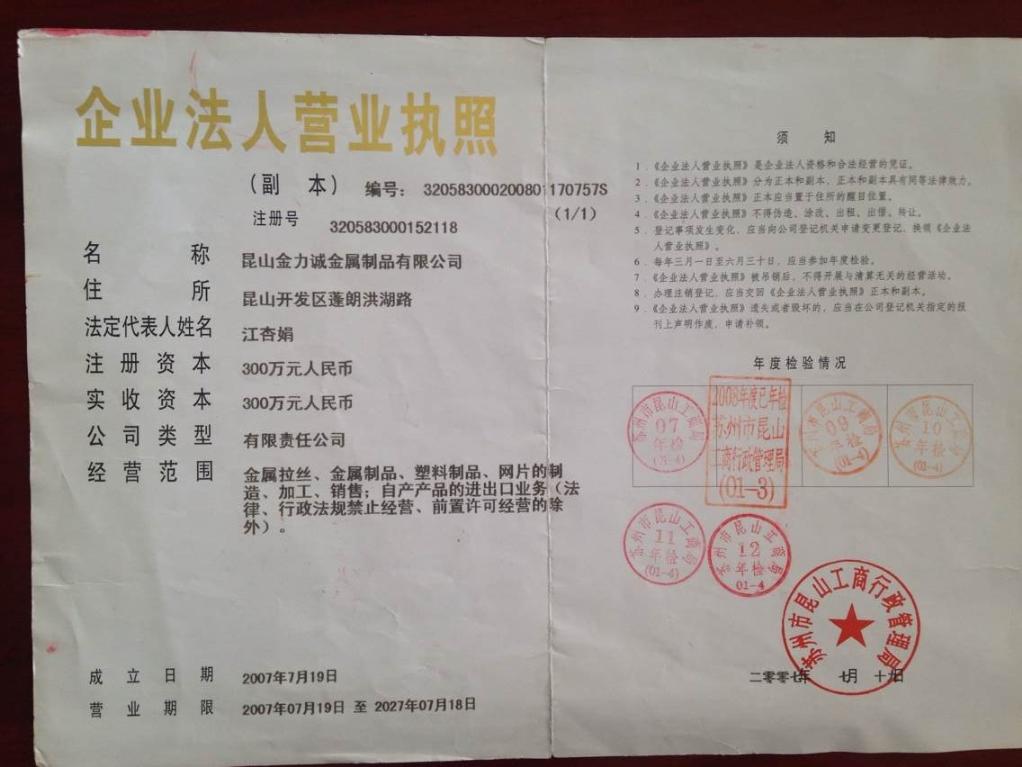 企业法人营业执照
（副 本） 编号： 320583000200801170757S
（1/1）
注册号 320583000152118
名 称 昆山金力诚金属制品有限公司
住 所 昆山开发区蓬朗洪湖路
法定代表人姓名 江杏娟
注 册 资 本 300万元人民币
实 收 资 本 300万元人民币
公 司 类 型 有限责任公司
经 营 范 围 金属拉丝、金属制品、塑料制品、网片的制
造、加工、销售；自产产品的进出口业务（法
律、行政法规禁止经营、前置许可经营的除
外）。
成 立 日 期 2007年7月19日
营 业 期 限 2007年07月19日 至 2027年07月18日
须 知
1．《企业法人营业执照》是企业法人资格和合法经营的凭证。
2．《企业法人营业执照》分为正本和副本，正本和副本具有同等法律效力。
3．《企业法人营业执照》正本应当置于住所的醒目位置。
4．《企业法人营业执照》不得伪造、涂改、出租、出借、转让。
5．登记事项发生变化，应当向公司登记机关申请变更登记，换领《企业法
人营业执照》。
6．每年三月一日至六月三十日，应当参加年度检验。
7．《企业法人营业执照》被吊销后，不得开展与清算无关的经营活动。
8．办理注销登记，应当交回《企业法人营业执照》正本和副本。
9．《企业法人营业执照》遗失或者毁坏的，应当在公司登记机关指定的报
刊上声明作废，申请补领。
年 度 检 验 情 况
苏州市昆山工商局
07
年检
2008年度已年检
苏州市昆山
工商行政管理局
(01-3)
09
年检
(01-4)
10
年检
(01-4)
苏州市昆山工商局
11
年检
(01-4)
苏州市昆山工商局
12
年检
01-4
苏州市昆山工商行政管理局
二零零七年 七月 十九日